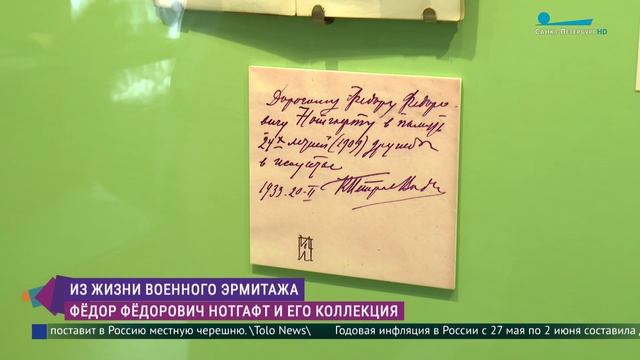 САНКТ-ПЕТЕРБУРГ HD
Дорогому Федору Федоро-
вичу Нотгафту в память
24х летней (1909) дружбы
в искусстве
1933-20-II КПетров Водкин
ИЗ ЖИЗНИ ВОЕННОГО ЭРМИТАЖА
ФЁДОР ФЁДОРОВИЧ НОТГАФТ И ЕГО КОЛЛЕКЦИЯ
поставит в Россию местную черешню. \Tolo News\ Годовая инфляция в России с 27 мая по 2 июня составила